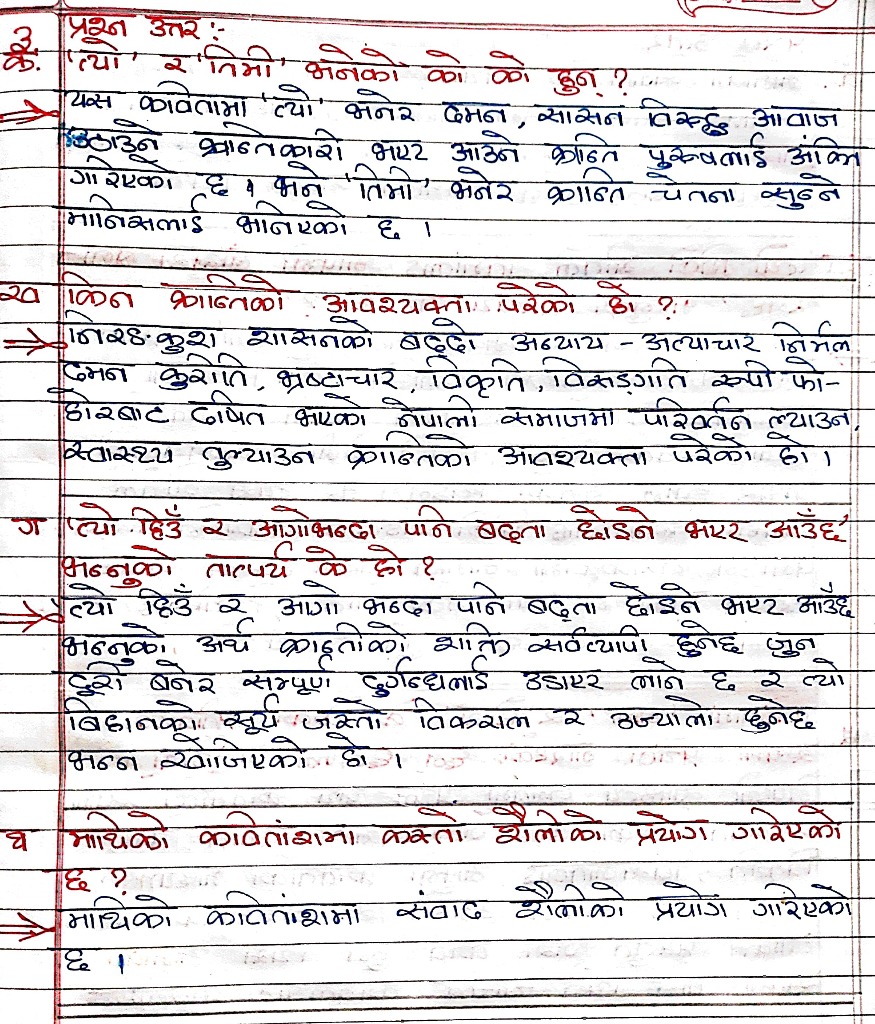 ३ प्रश्न उत्तर :-
क. 'त्यो' र 'तिमी' भनेको को को हुन् ?
⇒ यस कवितामा 'त्यो' भनेर दमन, सासन विरुद्ध आवाज
उठाउने क्रान्तिकारी भएर आउने क्रान्ति पुरुषलाई अंकित
गरिएको छ । भने 'तिमी' भनेर क्रान्ति चेतना सुन्ने
मानिसलाई भनिएको छ ।
ख किन क्रान्तिको आवश्यक्ता परेको हो ?
⇒ निरङ्कुश शासनको बढ्दो अन्याय - अत्याचार निर्मल
दमन कुरीति, भ्रष्टाचार, विकृति, विसङ्गति रुपी फो-
होरबाट दुषित भएको नेपाली समाजमा परिवर्तन ल्याउन,
स्वास्थ्य तुल्याउन क्रान्तिको आवश्यक्ता परेको हो ।
ग 'त्यो हिउँ र आगोभन्दा पनि बढ्ता छोइने भएर आउँछ'
भन्नुको तात्पर्य के हो ?
⇒ त्यो हिउँ र आगो भन्दा पनि बढ्ता छोइने भएर आउँछ
भन्नुको अर्थ क्राइतीको शक्ति सर्वव्यापी हुनेछ जुन
हुरी बनेर सम्पूर्ण दुर्गन्धलाई उडाएर लाने छ र त्यो
बिहानको सूर्य जस्तो विकराल र उज्यालो हुनेछ
भन्न खोजिएको हो ।
घ माथिको कवितांशमा कस्तो शैलीको प्रयोग गरिएको
छ ?
⇒ माथिको कवितांशमा संवाद शैलीको प्रयोग गरिएको
छ ।